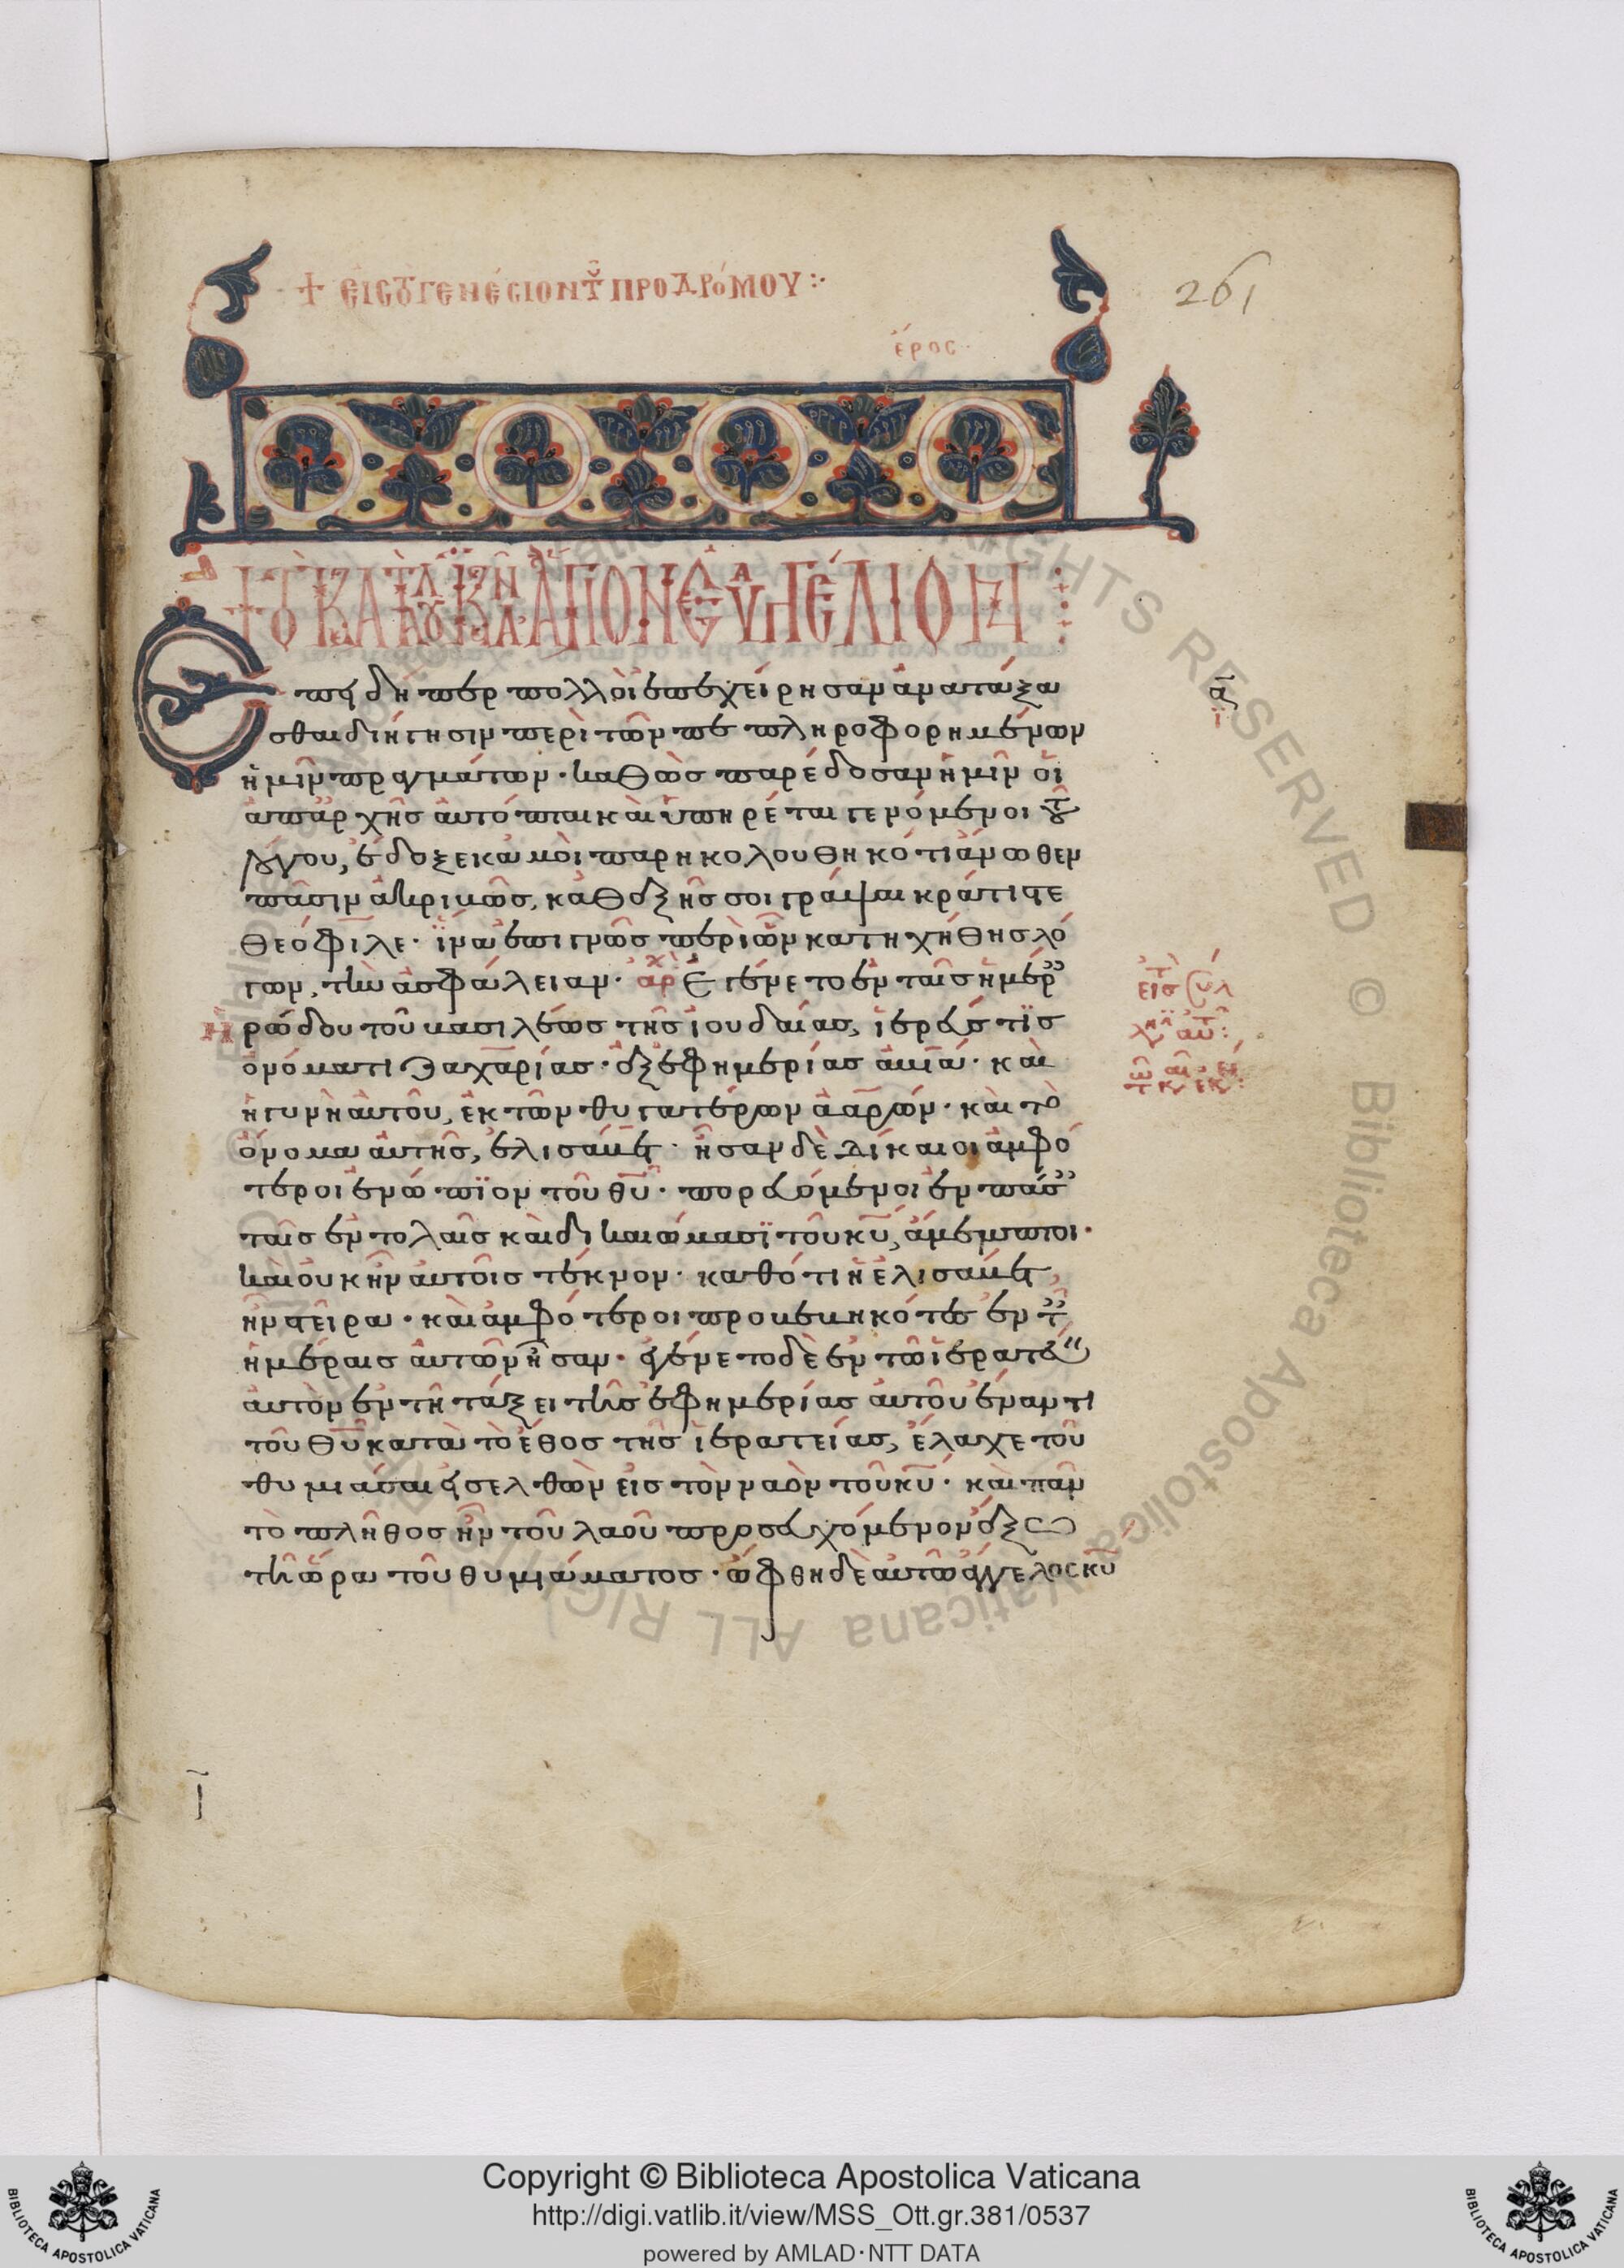 + εἰς τὸ γενέσιον τοῦ προδρόμου :·
261
+ τὸ κατὰ λουκᾶν ἅγιον εὐαγγέλιον :
Ἐπειδήπερ πολλοὶ ἐπεχείρησαν ἀναταξα
σθαι διήγησιν περὶ τῶν πεπληροφορημένων
ἡμῖν πραγμάτων· καθὼς παρέδοσαν ἡμῖν οἱ
ἀπαρχῆς αὐτόπται καὶ ὑπηρέται γενόμενοι τοῦ
λόγου, ἔδοξε κἀμοὶ παρηκολουθηκότι ἄνωθεν
πᾶσιν ἀκριβῶς, καθεξῆς σοι γράψαι κράτιστε
Θεόφιλε· ἵνα ἐπιγνῶς περὶ ὧν κατηχήθης λό
γων, τὴν ἀσφάλειαν· ἀρχ Ἐγένετο ἐν ταῖς ἡμέρ
ρώδου τοῦ βασιλέως τῆς ἰουδαίας, ἱερεύς τις
ὀνόματι Ζαχαρίας· ἐξ ἐφημερίας ἀβιά· καὶ
ἡ γυνὴ αὐτοῦ, ἐκ τῶν θυγατέρων ἀαρών· καὶ τὸ
ὄνομα αὐτῆς, ἐλισάβετ· ἦσαν δὲ δίκαιοι ἀμφό
τεροι ἐνώπϊον τοῦ θυ· πορευόμενοι ἐν πάσ
ταῖς ἐντολαῖς καὶ δικαιώμασϊ τοῦ κυ, ἄμεμπτοι·
καὶ οὐκ ἦν αὐτοῖς τέκνον· καθότι ἡ ἐλισάβετ,
ἦν στεῖρα· καὶ ἀμφότεροι προβεβηκότες ἐν τ
ἡμέραις αὐτῶν ἦσαν· ἐγένετο δὲ ἐν τῶ ἱερατεύειν
αὐτὸν ἐν τῆ τάξει τῆς ἐφημερίας αὐτοῦ ἔναντι
τοῦ θυ κατὰ τὸ ἔθος τῆς ἱερατείας, ἔλαχε τοῦ
θυμιάσαι εἰσελθὼν εἰς τὸν ναὸν τοῦ κυ· καὶ πᾶν
τὸ πλῆθος ἦν τοῦ λαοῦ προσευχόμενον ἔξω
τῆ ὥρα τοῦ θυμιάματος· ὤφθη δὲ αὐτῶ ἄγγελος κυ
Copyright © Biblioteca Apostolica Vaticana
http://digi.vatlib.it/view/MSS_Ott.gr.381/0537
powered by AMLAD·NTT DATA